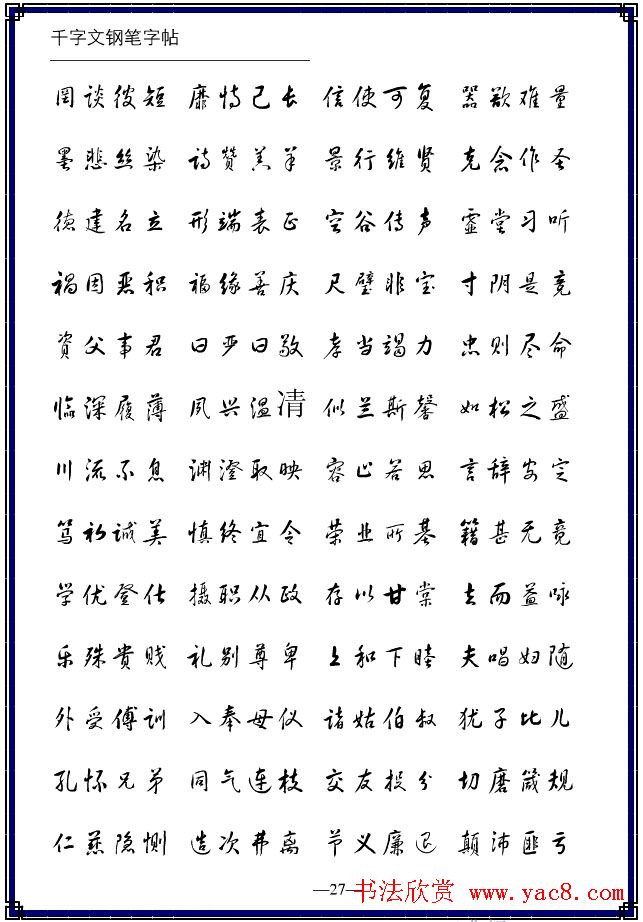 千字文钢笔字帖
罔谈彼短 靡恃己长 信使可复 器欲难量
墨悲丝染 诗赞羔羊 景行维贤 克念作圣
德建名立 形端表正 空谷传声 虚堂习听
祸因恶积 福缘善庆 尺璧非宝 寸阴是竞
资父事君 曰严曰敬 孝当竭力 忠则尽命
临深履薄 夙兴温凊 似兰斯馨 如松之盛
川流不息 渊澄取映 容止若思 言辞安定
笃初诚美 慎终宜令 荣业所基 籍甚无竟
学优登仕 摄职从政 存以甘棠 去而益咏
乐殊贵贱 礼别尊卑 上和下睦 夫唱妇随
外受傅训 入奉母仪 诸姑伯叔 犹子比儿
孔怀兄弟 同气连枝 交友投分 切磨箴规
仁慈隐恻 造次弗离 节义廉退 颠沛匪亏
—27—
书法欣赏 www.yac8.com